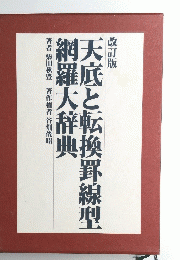 改訂版
天底と転換罫線型
網羅大辞典
著者
著作権者